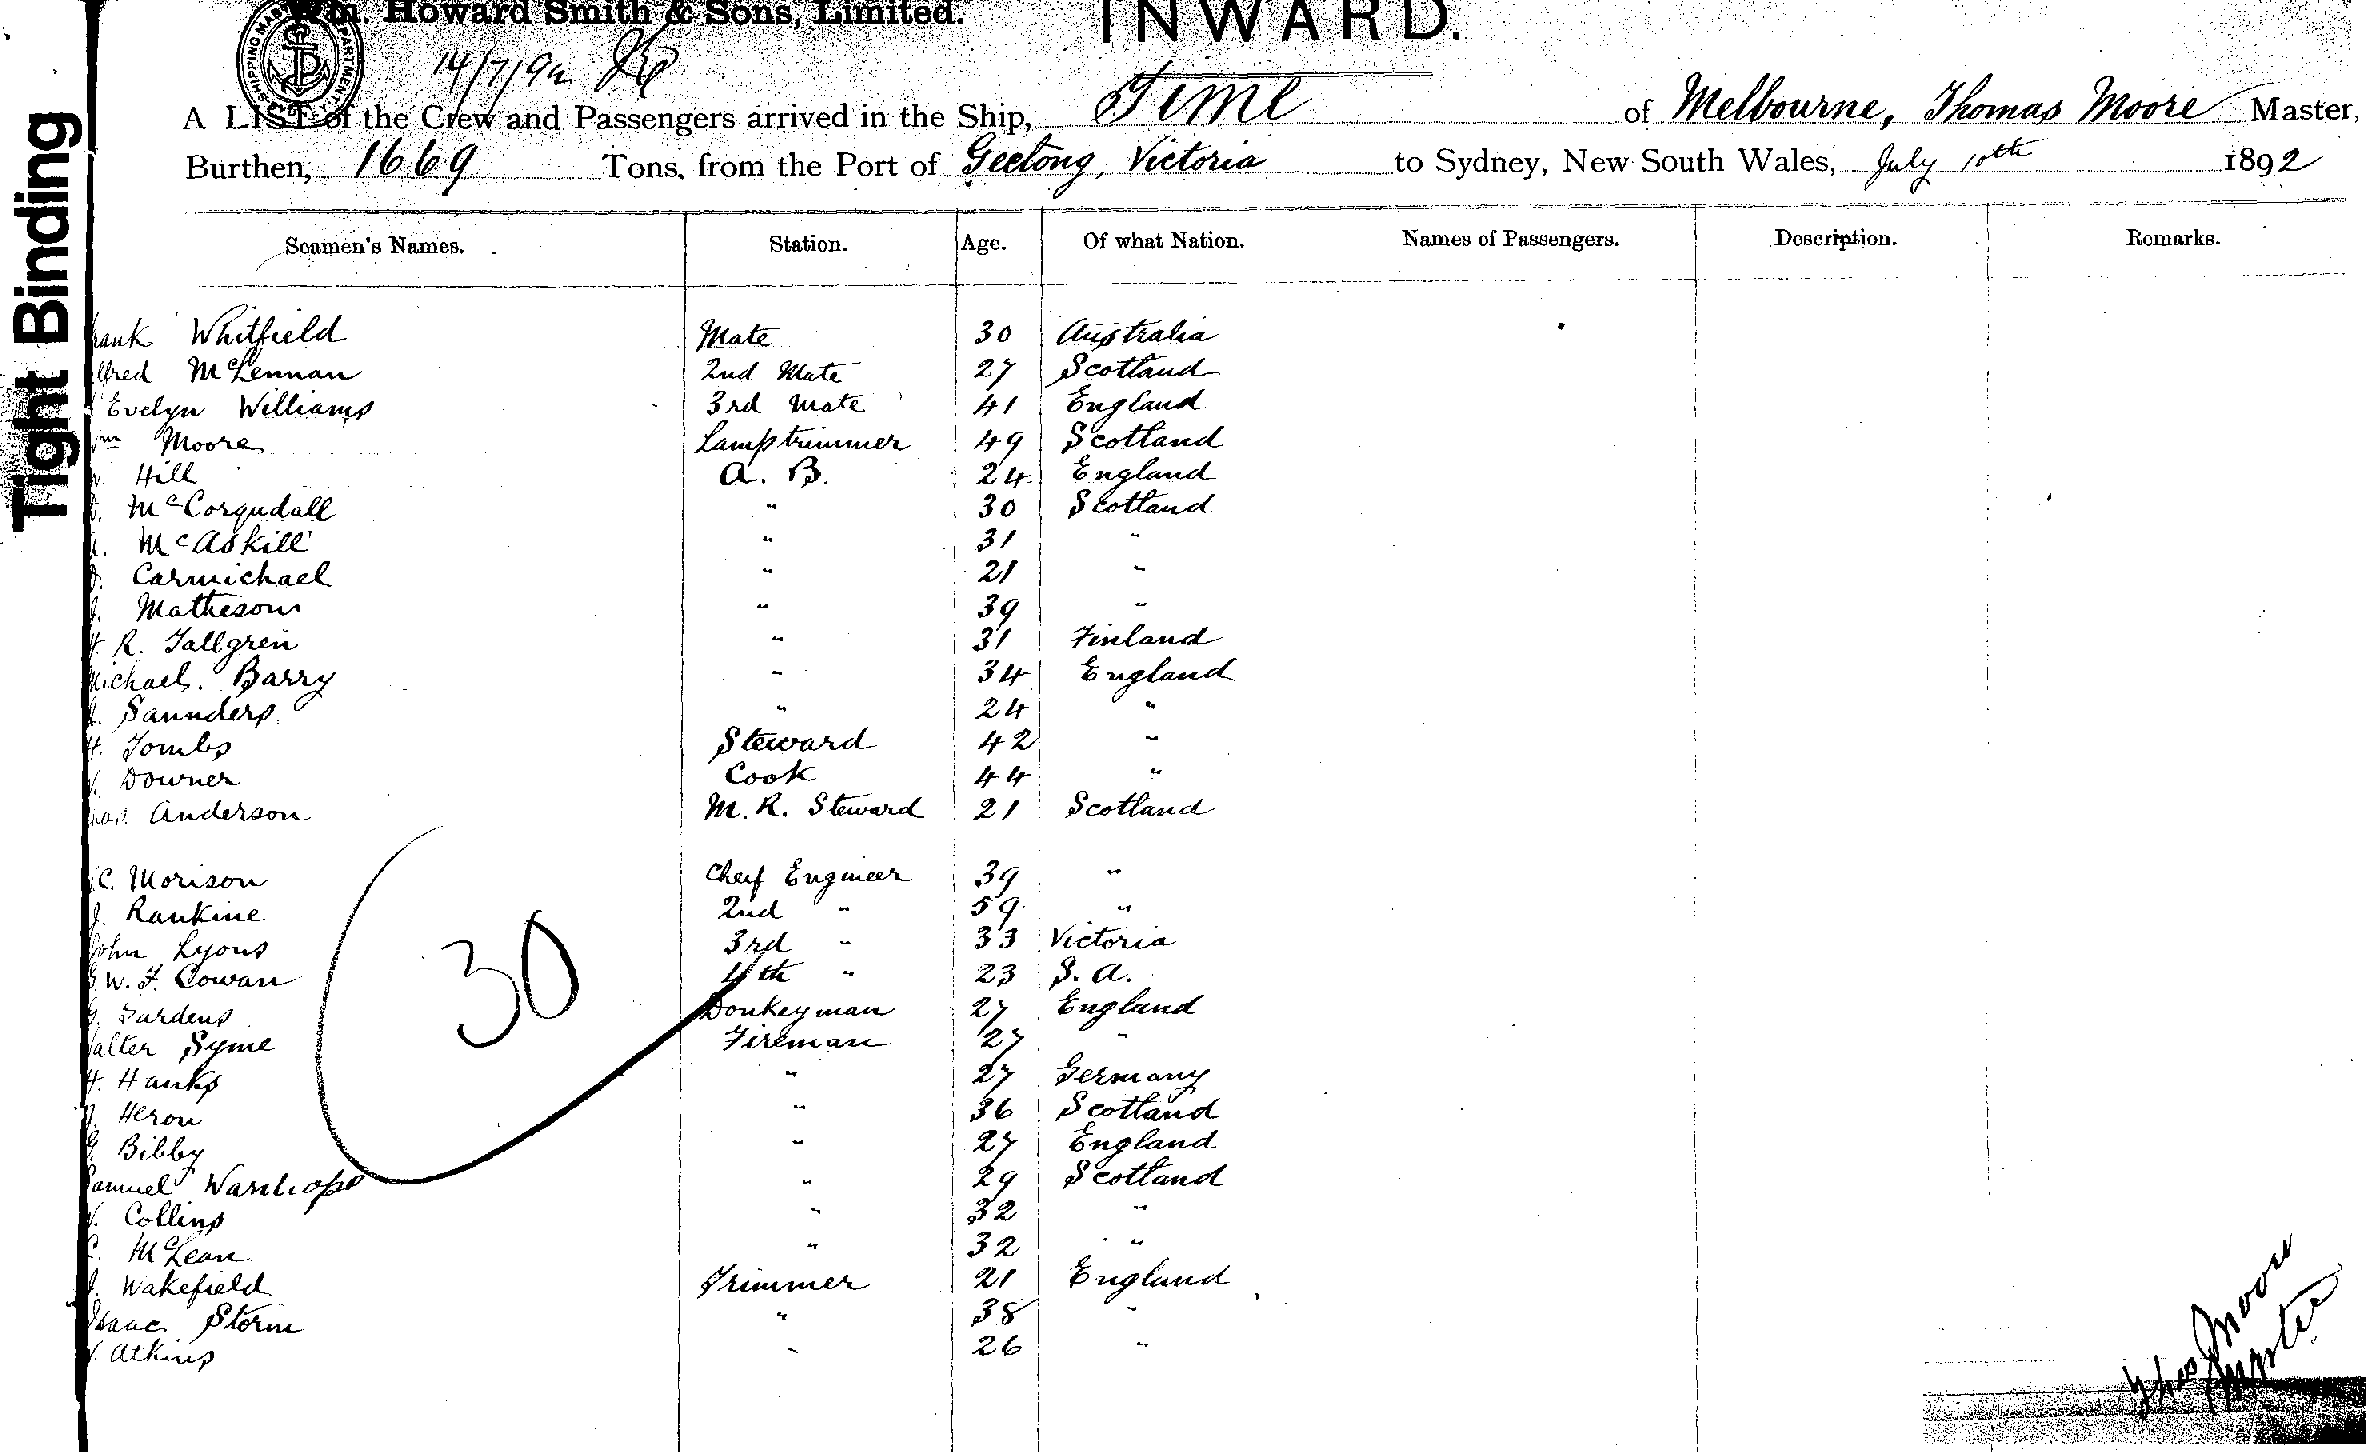 Wm. Howard Smith & Sons, Limited.
INWARD.
14/7/92
Tight Binding
A LIST of the Crew and Passengers arrived in the Ship, Time of Melbourne, Thomas Moore Master,
Burthen, 1669 Tons, from the Port of Geelong, Victoria to Sydney, New South Wales, July 10th 1892
Seamen's Names. Station. Age. Of what Nation. Names of Passengers. Description. Remarks.
rank Whitfield Mate 30 Australia
lfred McLennan 2nd Mate 27 Scotland
Evelyn Williams 3rd Mate 41 England
m Moore Lamptrimmer 49 Scotland
Hill A. B. 24 England
McCorqudall " 30 Scotland
McAskill " 31 "
Carmichael " 21 "
Matheson " 39 "
R. Tallgren " 31 Finland
Michael Barry " 34 England
J. Saunders " 24 "
H. Tombs Steward 42 "
Downer Cook 44 "
Anderson M. R. Steward 21 Scotland
C. Morison Cheif Engineer 39 "
J. Rankine 2nd " 59 "
John Lyons 3rd " 33 Victoria
G. W. F. Cowan 4th " 23 S. A.
Jardens Donkeyman 27 England
alter Syme Fireman 27 "
H. Hanks " 27 Germany
J. Heron " 36 Scotland
Bibby " 27 England
Samuel Wardrope " 29 Scotland
Collins " 32 "
McLean " 32 "
J. Wakefield Trimmer 21 England
Isaac Storm " 38 "
Atkins " 26 "
30
Thos Moore
Master